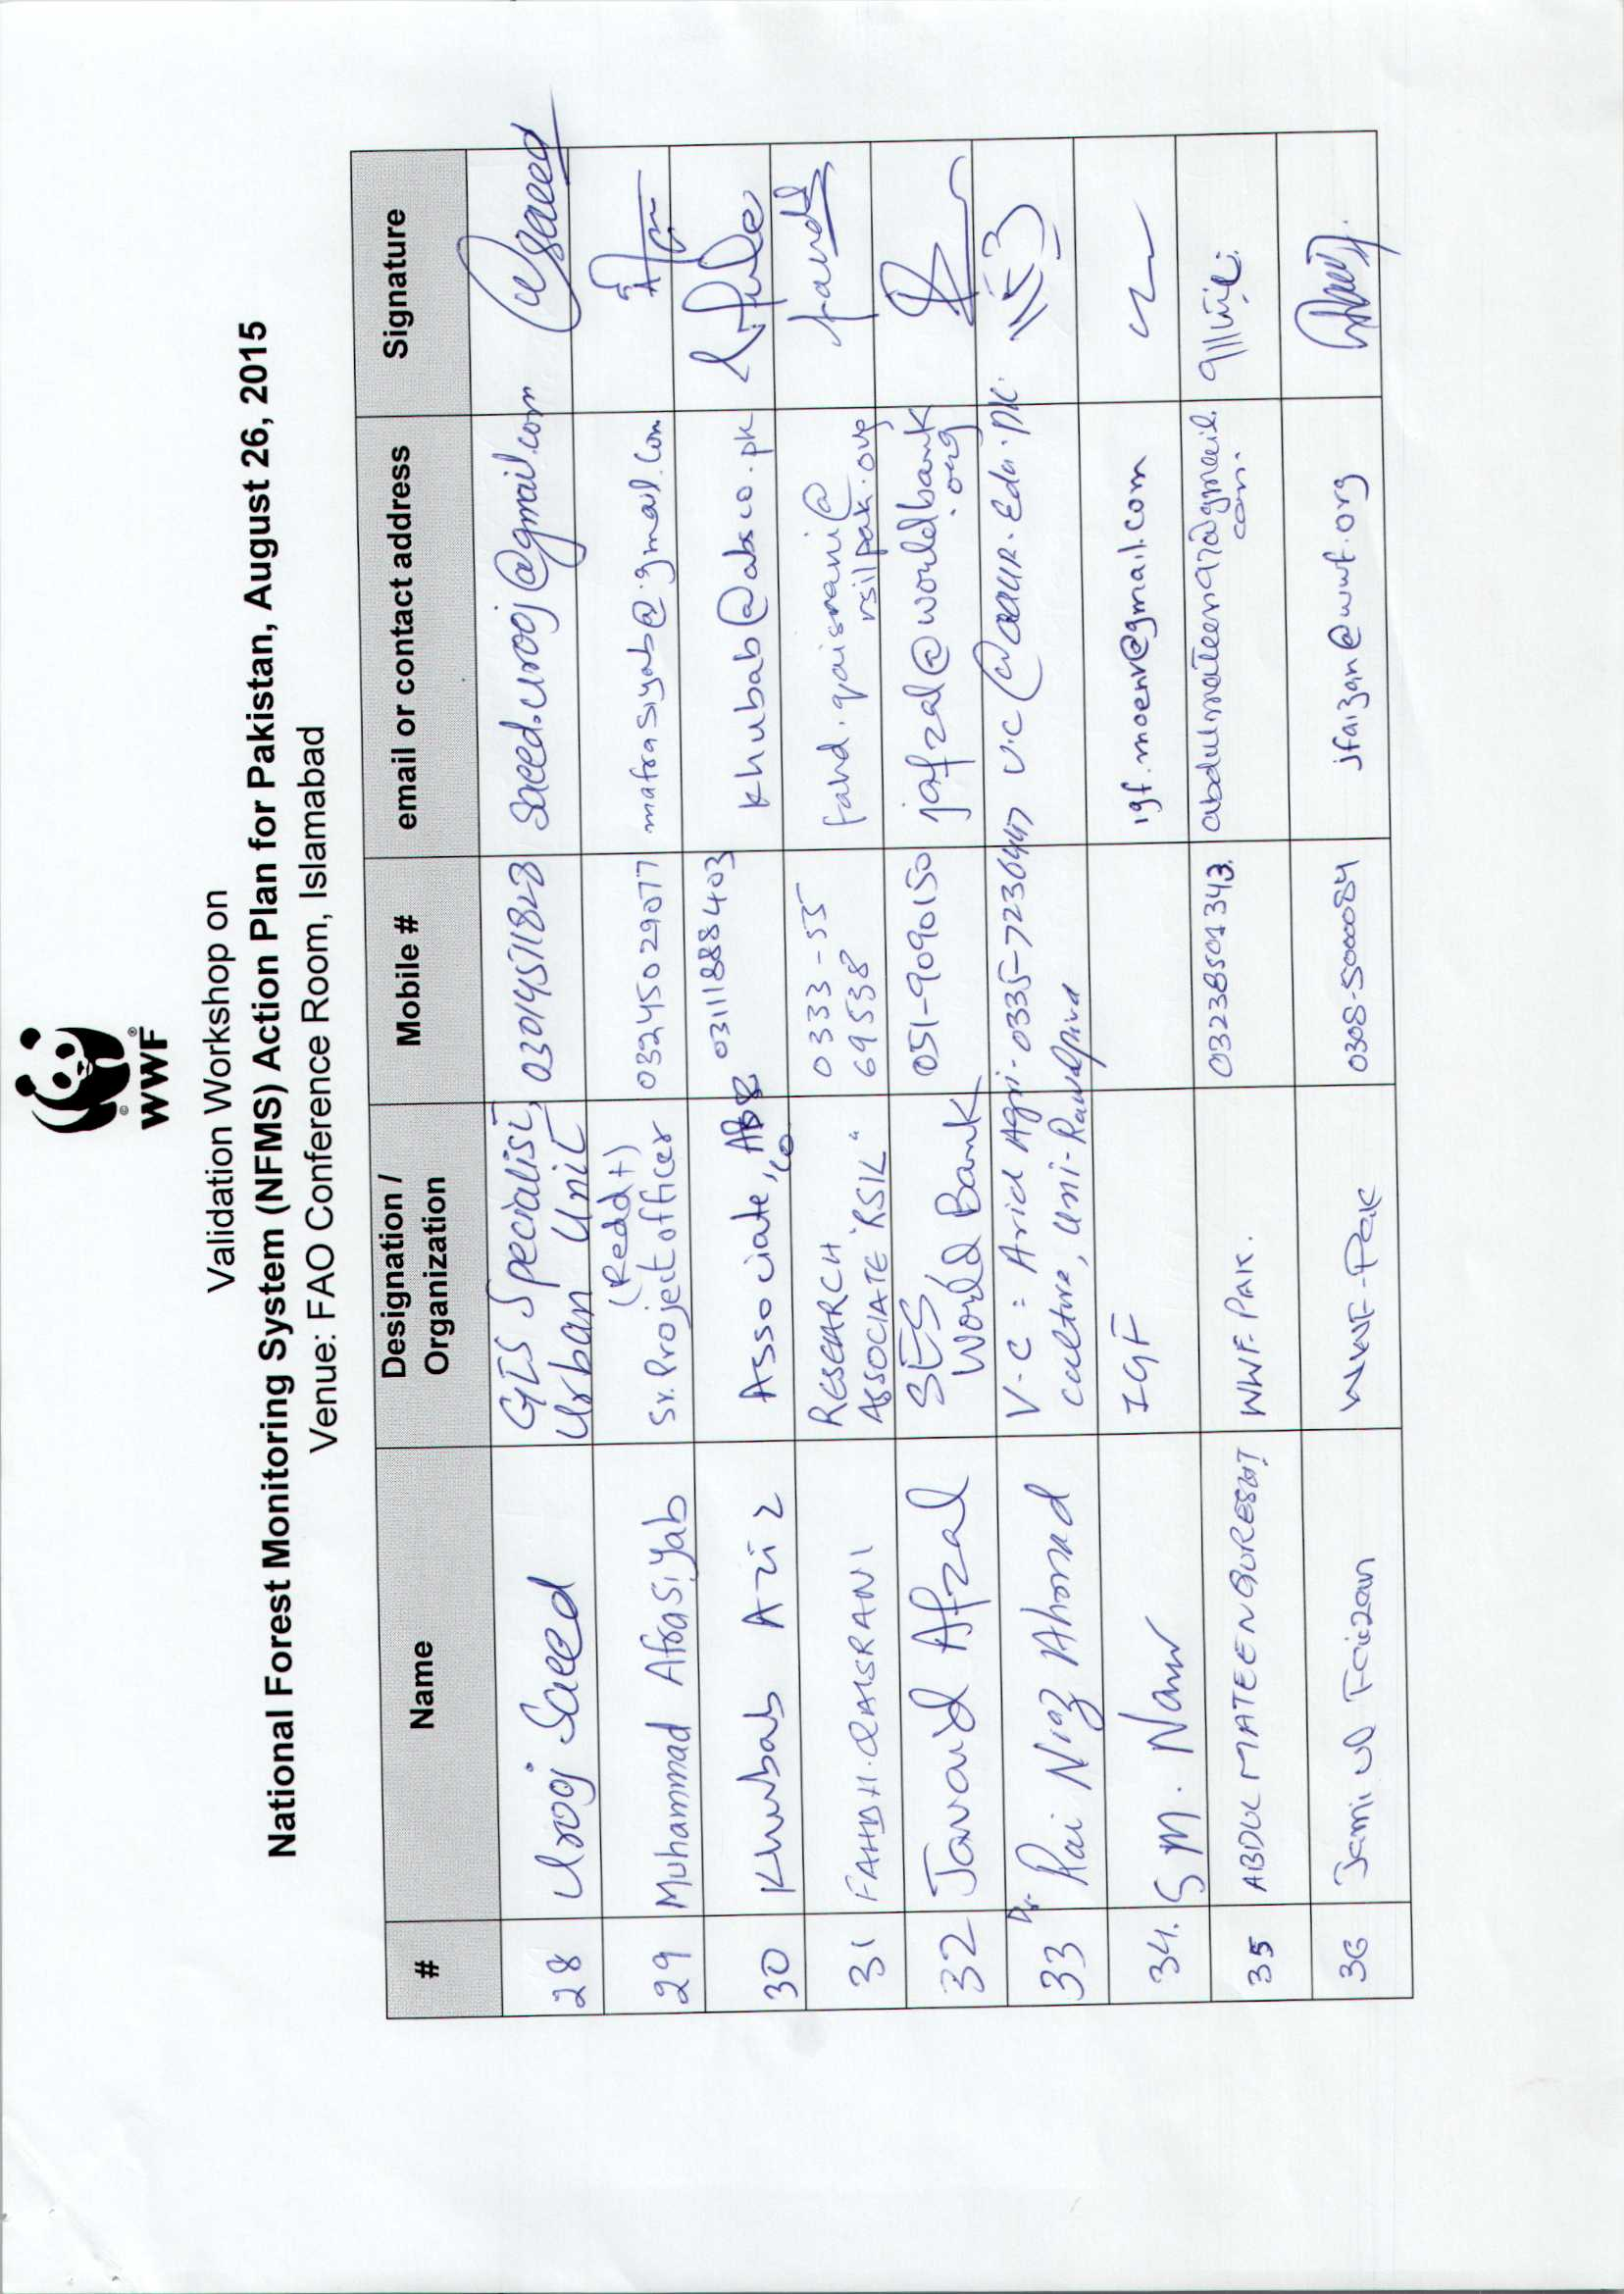 WWF
Validation Workshop on
National Forest Monitoring System (NFMS) Action Plan for Pakistan, August 26, 2015
Venue: FAO Conference Room, Islamabad
# Name Designation / Organization Mobile # email or contact address Signature
28 Urooj Saeed GIS Specialist, Urban Unit 03014511828 saeed.urooj@gmail.com
29 Muhammad Afrasiyab (Redd+) Sr. Project officer 03245029077 mafrasiyab@gmail.com
30 Khubab Aziz Associate, 03111888403 khubab@absco.pk
31 FAHD H. QAISRANI RESEARCH ASSOCIATE "RSIL" 0333-55 69538 fahd.qaisrani@ rsilpak.org
32 Javaid Afzal SES World Bank 051-9090150 jafzal@worldbank .org
33 Dr. Rai Niaz Ahmad V-C = Arid Agri- culture, Uni-Rawalpind 0335-7230447 v.c@aaur.Edu.pk.
34. S M. IGF igf.moenv@gmail.com
35 ABDUL MATEEN QURESHI WWF. PAK. 03238501343.
36 Jami ul Faizan WWF-Pak 0308-5000084 jfaizan@wwf.org